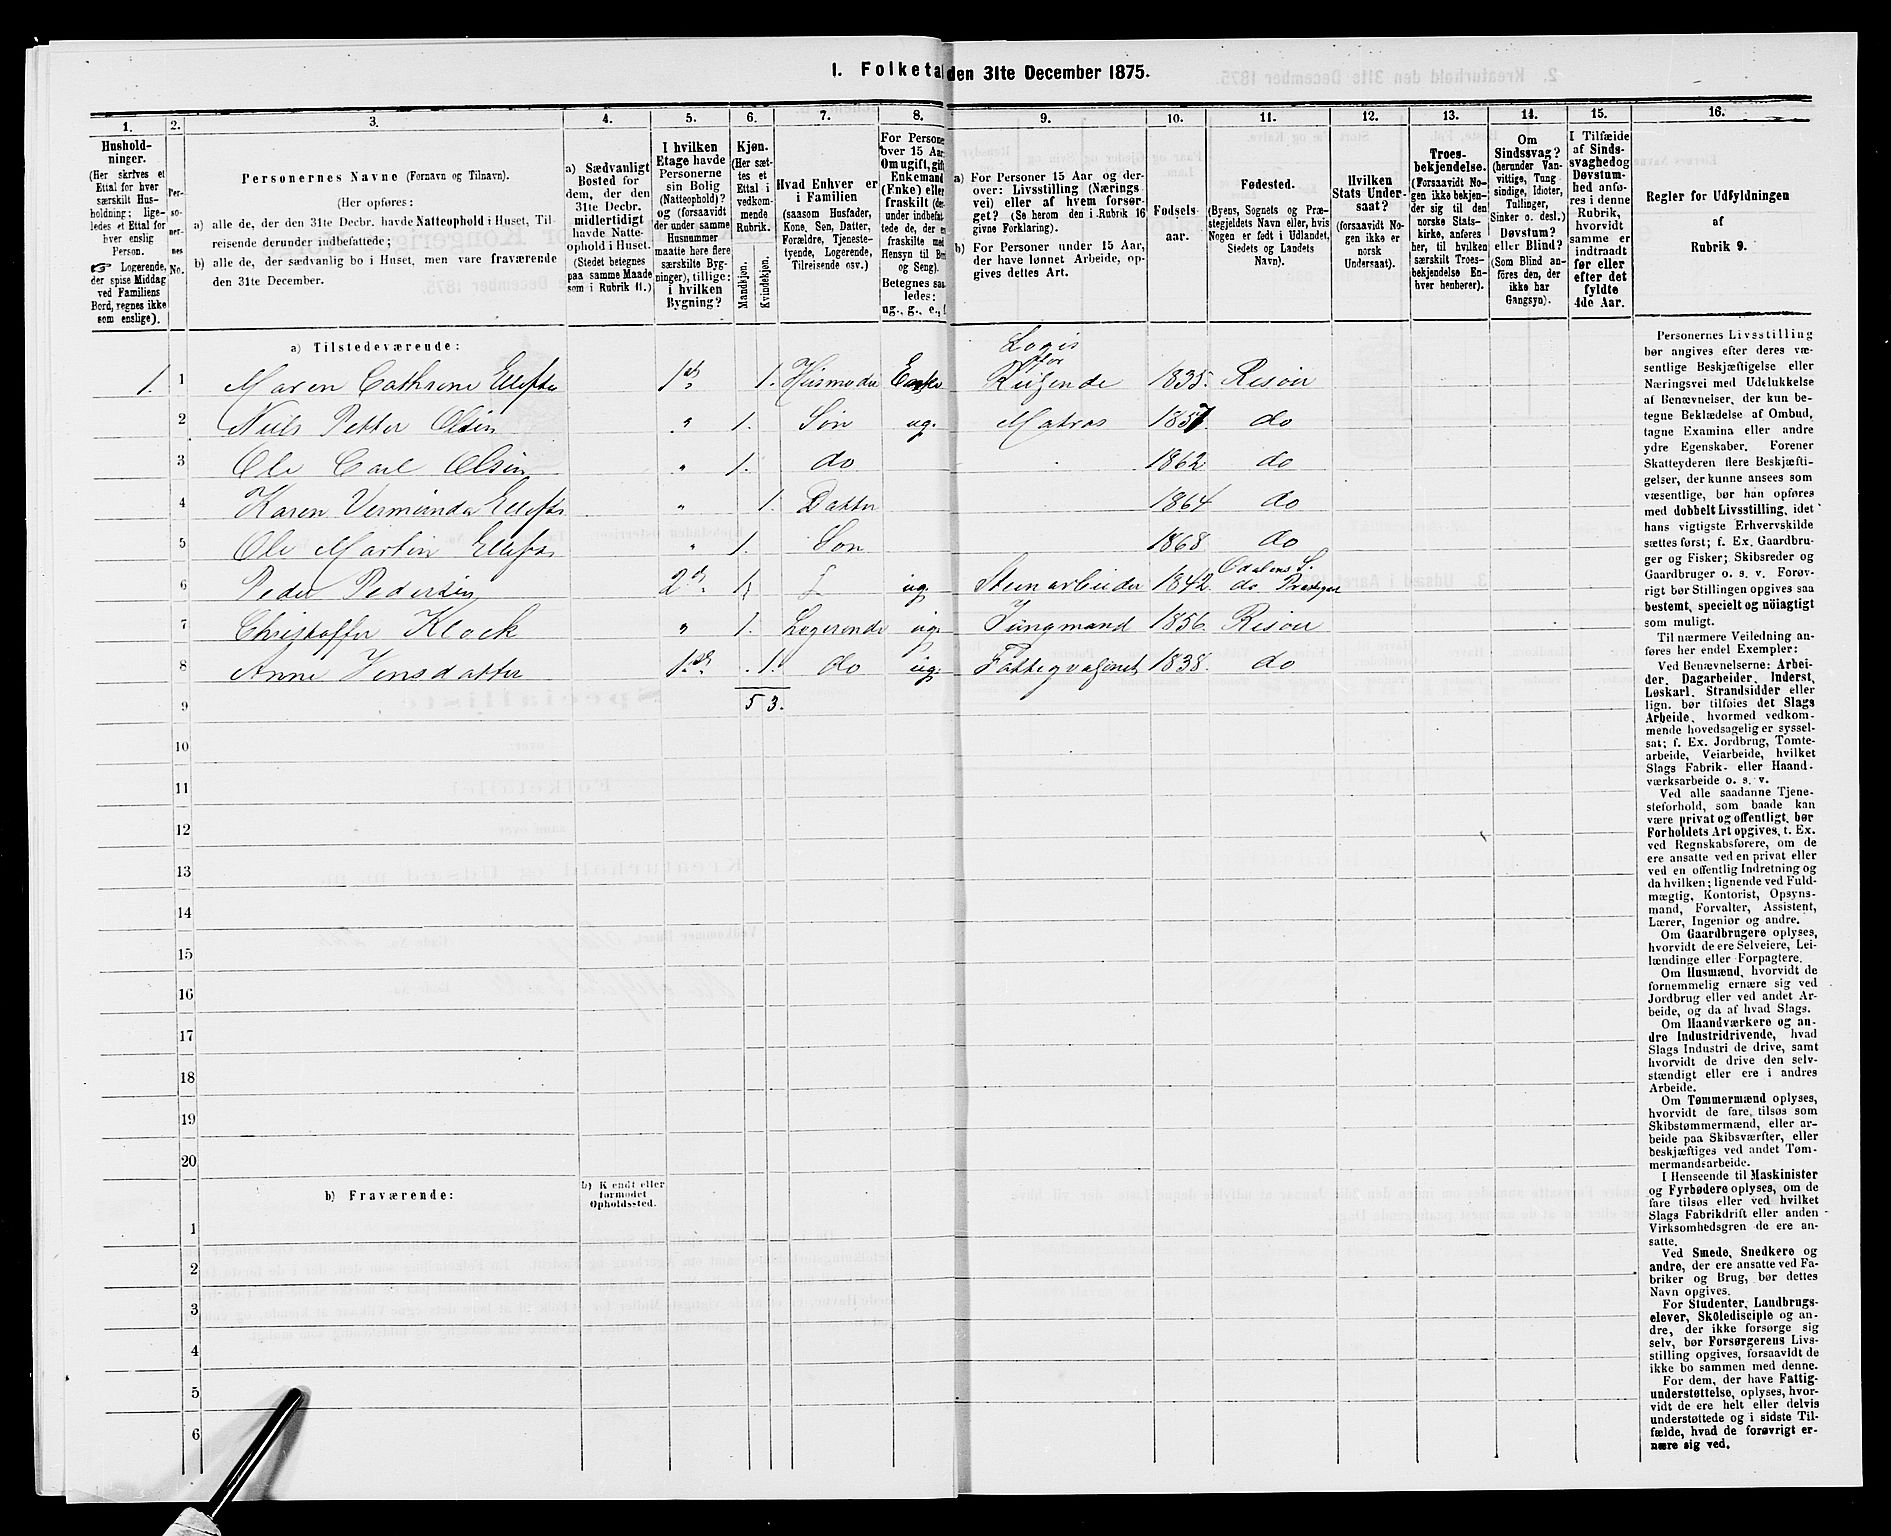 1. Folketal den 31te December 1875.
1. 2. 3. 4. 5. 6. 7. 8. 9. 10. 11. 12. 13. 14. 15. 16.
Hushold-
ninger.
(Her skrives et
Ettal for hver
særskilt Hus-
holdning; lige-
ledes et Ettal for
hver enslig
Person.
☞ Logerende,
der spise Middag
ved Familiens
Bord, regnes ikke
som enslige).
Per-
so-
ner-
nes
No.
Personernes Navne (Fornavn og Tilnavn).
(Her opføres:
a) alle de, der den 31te Decbr. havde Natteophold i Huset, Til-
reisende derunder indbefattede;
b) alle de, der sædvanlig bo i Huset, men vare fraværende
den 31te December.
a) Sædvanligt
Bosted for
dem, der den
31te Decbr.
midlertidigt
havde Natte-
ophold i Huset.
(Stedet betegnes
paa samme Maade
som i Rubrik 11.)
I hvilken
Etage havde
Personerne
sin Bolig
(Natteophold)?
og (forsaavidt
der under samme
Husnummer
maatte høre flere
særskilte Byg-
ninger), tillige:
i hvilken
Bygning?
Kjøn.
(Her sæt-
tes et
Ettal i
vedkom-
mende
Rubrik.
Mandkjøn.
Kvindekjøn.
Hvad Enhver er
i Familien
(saasom Husfader,
Kone, Søn, Datter,
Forældre, Tjeneste-
tyende, Logerende,
Tilreisende osv.)
For Persone
over 15 Aar
Om ugift, gift
Enkemand
(Enke) elle
fraskilt (de
under indbefat
tede de, der e
fraskilte med
Hensyn til Bo
og Seng).
Betegnes saa
ledes:
ug., g., e.,
a) For Personer 15 Aar og der-
over: Livsstilling (Nærings-
vei) eller af hvem forsør-
get? (Se herom den i Rubrik 16
givne Forklaring).
b) For Personer under 15 Aar,
der have lønnet Arbeide, op-
gives dettes Art.
Fødsels
aar.
Fødested.
(Byens, Sognets og Præ-
stegjeldets Navn eller, hvis
Nogen er født i Udlandet,
Stedets og Landets
Navn).
Hvilken
Stats Under-
saat?
(forsaavidt No-
gen ikke er
norsk
Undersaat).
Troes-
bekjendelse.
(Forsaavidt No-
gen ikke bekjen-
der sig til den
norske Stats-
kirke, anføres
her, til hvilken
særskilt Troes-
bekjendelse En-
hver henhører).
Om
Sindssvag?
(herunder Van-
vittige, Tung
sindige, Idioter,
Tullinger,
Sinker o. desl.)
Døvstum?
eller Blind?
(Som Blind an-
føres den, der
ikke har
Gangsyn).
I Tilfælde
af Sinds-
svaghed og
Døvstum-
hed anfø-
res i denne
Rubrik,
hvorvidt
samme er
indtraadt
før eller
efter det
fyldte
4de Aar.
Regler for Udfyldningen
af
Rubrik 9.
a) Tilstedeværende:
Logis
for
1. 1 Maren Cathrine Ellefts 1st 1. Husmoder Enke Reisende 1835. Risøer
2 Niels Petter Olsen " 1. Søn ug. Matros 1857. do
3 Ole Carl Olsen " 1. do 1862 do
4 Karen Verminda Ellefts " 1. Datter 1864 do
5 Ole Martin Ellefts " 1. Søn 1868 do
Odalens S.
6 Peder Pedersen 2d 1 L ug. Stenarbeider 1842. do Prestegjer
7 Christoffer Klock " 1. Logerende ug. Jungmand 1856. Risøer
8 Anne Jensdatter 1st 1. do ug. Fattigvæsenet 1838. do
9 5 3.
10
11
12
13
14
15
16
17
18
19
20
b) Fraværende:
b) Kendt eller
formodet
Opholdssted.
1
2
3
4
5
6
Personernes Livsstilling
bør angives efter deres væ-
sentlige Beskjæftigelse eller
Næringsvei med Udelukkelse
af Benævnelser, der kun be-
tegne Beklædelse af Ombud,
tagne Examina eller andre
ydre Egenskaber. Forener
Skatteyderen flere Beskjæfti-
gelser, der kunne ansees som
væsentlige, bør han opføres
med dobbelt Livsstilling, idet
hans vigtigste Erhvervskilde
sættes først; f. Ex. Gaardbru-
ger og Fisker; Skibsreder og
Gaardbruger o. s. v. Forøv-
rigt bør Stillingen opgives saa
bestemt, specielt og nöiagtigt
som muligt.
Til nærmere Veiledning an-
føres her endel Exempler:
Ved Benævnelserne: Arbei-
der, Dagarbeider, Inderst,
Løskarl, Strandsidder eller
lign. bør tilføies det Slags
Arbeide, hvormed vedkom-
mende hovedsagelig er syssel-
sat; f. Ex. Jordbrug, Tomte-
arbeide, Veiarbeide, hvilket
Slags Fabrik- eller Haand-
værksarbeide o. s. v.
Ved alle saadanne Tjene-
steforhold, som baade kan
være privat og offentligt, bør
Forholdets Art opgives, t. Ex.
ved Regnskabsførere, om de
ere ansatte ved en privat eller
ved en offentlig Indretning og
da hvilken; lignende ved Fuld-
mægtig, Kontorist, Opsyns-
mand, Forvalter, Assistent,
Lærer, Ingeniør og andre.
Om Gaardbrugere oplyses,
hvorvidt de ere Selveiere, Lei-
lændinge eller Forpagtere.
Om Husmænd, hvorvidt de
fornemmelig ernære sig ved
Jordbrug eller ved andet Ar-
beide, og da af hvad Slags.
Om Haandværkere og an-
dre Industridrivende, hvad
Slags Industri de drive, samt
hvorvidt de drive den selv-
stændigt eller ere i andres
Arbeide.
Om Tømmermænd oplyses,
hvorvidt de fare, tilsøs som
Skibstømmermænd, eller ar-
beide paa Skibsværfter, eller
beskjæftiges ved andet Tøm-
mermandsarbeide.
I Henseende til Maskinister
og Fyrbødere oplyses, om de
fare tilsøs eller ved hvilket
Slags Fabrikdrift eller anden
Virksomhedsgren de ere an-
satte.
Ved Smede, Snedkere og
andre, der ere ansatte ved Fa-
briker og Brug, bør dettes
Navn opgives.
For Studenter, Landbrugs-
elever, Skoledisciple og an-
dre, der ikke forsørge sig
selv, bør Forsørgerens Livs-
stilling opgives, forsaavidt de
ikke bo sammen med denne.
For dem, der have Fattig-
understøttelse, oplyses, hvor-
vidt de ere helt eller delvis
understøttede og i sidste Til-
fælde, hvad de forøvrigt er-
nære sig ved.